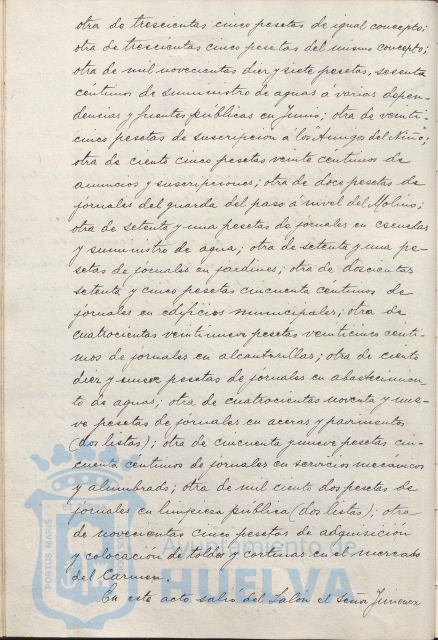 otra de trescientas cinco pesetas de igual concepto;
otra de trescientas cinco pesetas del mismo concepto;
otra de mil novecientas diez y siete pesetas, sesenta
céntimos de suministro de aguas á varias depen-
dencias y fuentes públicas en Junio; otra de veinti-
cinco pesetas de suscripcion a los "Amigos del Niño";
otra de ciento cinco pesetas veinte centimos de
anuncios y suscripciones; otra de doce pesetas de
jornales del guarda del paso a nivel del Molino;
otra de setenta y una pesetas de jornales en escuelas
y suministro de agua; otra de setenta y una pe-
setas de jornales en jardines; otra de doscientas
setenta y cinco pesetas cincuenta céntimos de
jornales en edificios municipales; otra de
cuatrocientas veintinueve pesetas veinticinco centi-
mos de jornales en alcantarillas; otra de ciento
diez y nueve pesetas de jornales en abastecimien
to de aguas; otra de cuatrocientas noventa y nue-
ve pesetas de jornales en aceras y pavimentos
(dos listas); otra de cincuenta y nueve pesetas cin-
cuenta céntimos de jornales en servicios mecánicos
y alumbrado; otra de mil ciento dos pesetas de
jornales en limpieza pública (dos listas); otra
de novecientas cinco pesetas de adquisición
y colocación de toldos y cortinas en el mercado
del Carmen.
En este acto salió del Salon el señor Jimenez
PORTUS MARIS
Ayuntamiento de
HUELVA